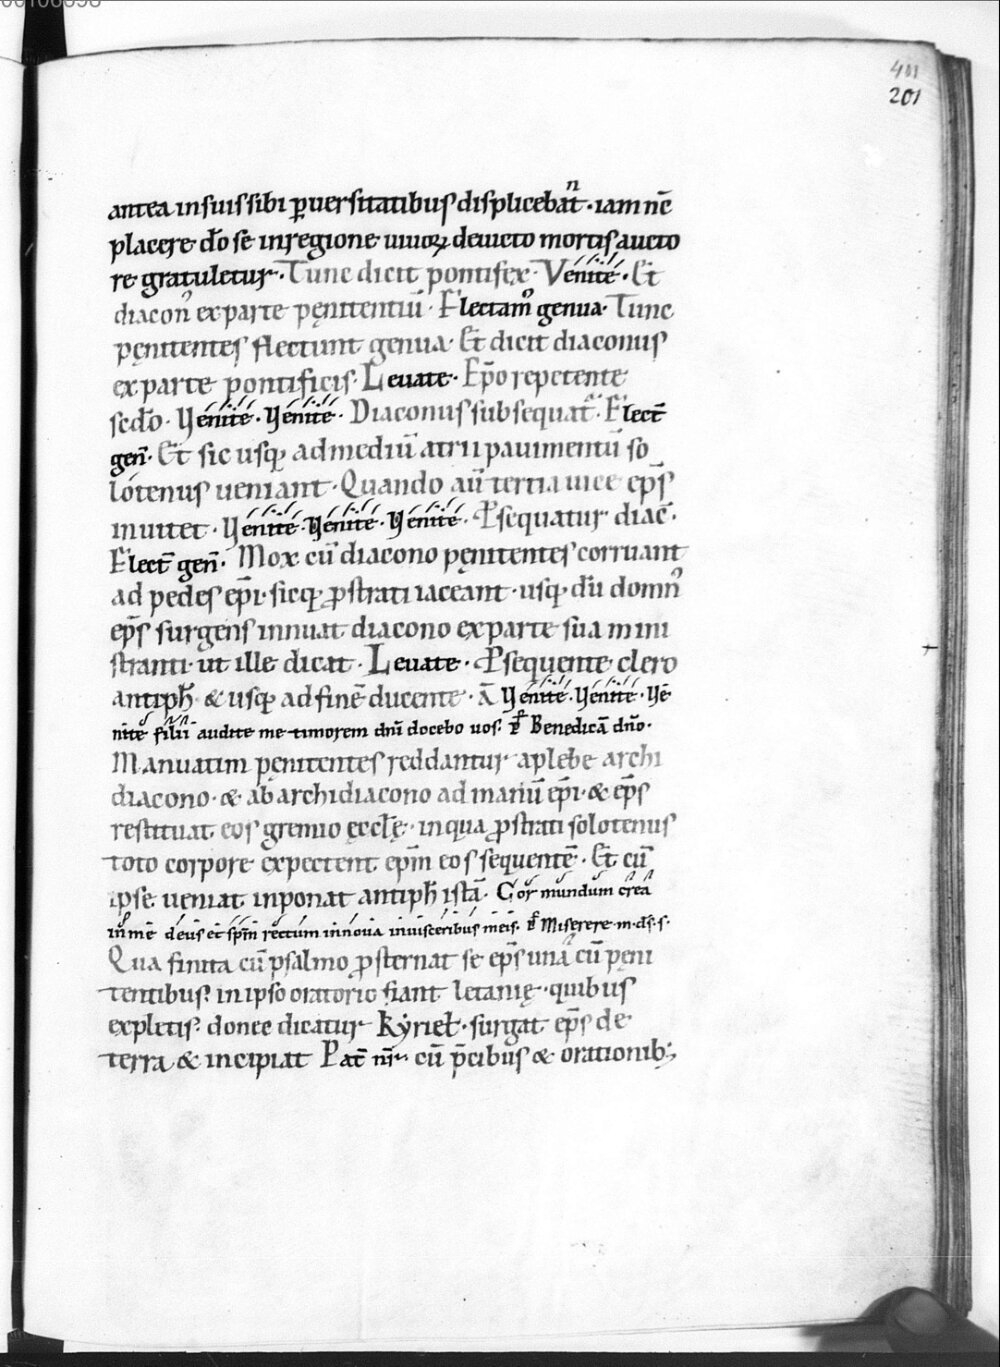 00106095
401
201
antea in suis sibi ꝑuersitatibus displicebat̄ · iam nc̄
placere d̄o se in regione uiuoꝝ deuicto mortis aucto
re gratuletur · Tunc dicit pontifex · Venite · Et
diacon᷒ ex parte pęnitentiū · Flectam᷒ genua · Tunc
pęnitentes flectunt genua · Et dicit diaconus
ex parte pontificis · Leuate · Ep̄o repetente
sc̄do · Venite · Venite · Diaconus subsequat̄ · Flect̄
gen̄ · Et sic usq; ad mediū atrii pauimentū so
lotenus ueniant · Quando aū tertia uice ep̄s
inuitet · Venite · Venite · Venite · Ꝓsequatur diac̄ ·
Flect̄ gen̄ · Mox cū diacono pęnitentes corruant
ad pedes ep̄i · sicq; ꝓstrati iaceant · usq; dū domn᷒
ep̄s surgens innuat diacono ex parte sua mini
stranti · ut ille dicat · Leuate · Ꝓsequente clero
antiph̄ · & usq; ad finē ducente · Ā Venite · Venite · Ve
nite filii audite me timorem dn̄i docebo uos · p̄s Benedicā dn̄o ·
Manuatim pęnitentes reddantur a plebe archi
diacono · & ab archidiacono ad manū ep̄i · & ep̄s
restituat eos gremio ęccl̄ę · in qua ꝓstrati solotenus
toto corpore expectent ep̄m eos sequentē · Et cū
ipse ueniat inponat antiph̄ istā · Cor mundum crea
in me deus et sp̄m rectum innoua in uisceribus meis · p̄s Miserere · m · d̄s · s ·
Qua finita cū psalmo ꝓsternat se ep̄s unā cū pęni
tentibus · in ipso oratorio fiant letanię · quibus
expletis · donec dicatur Kyriel̄ · surgat ep̄s de
terra & incipiat Pat̄ nr̄ · cū p̄cibus & orationib;